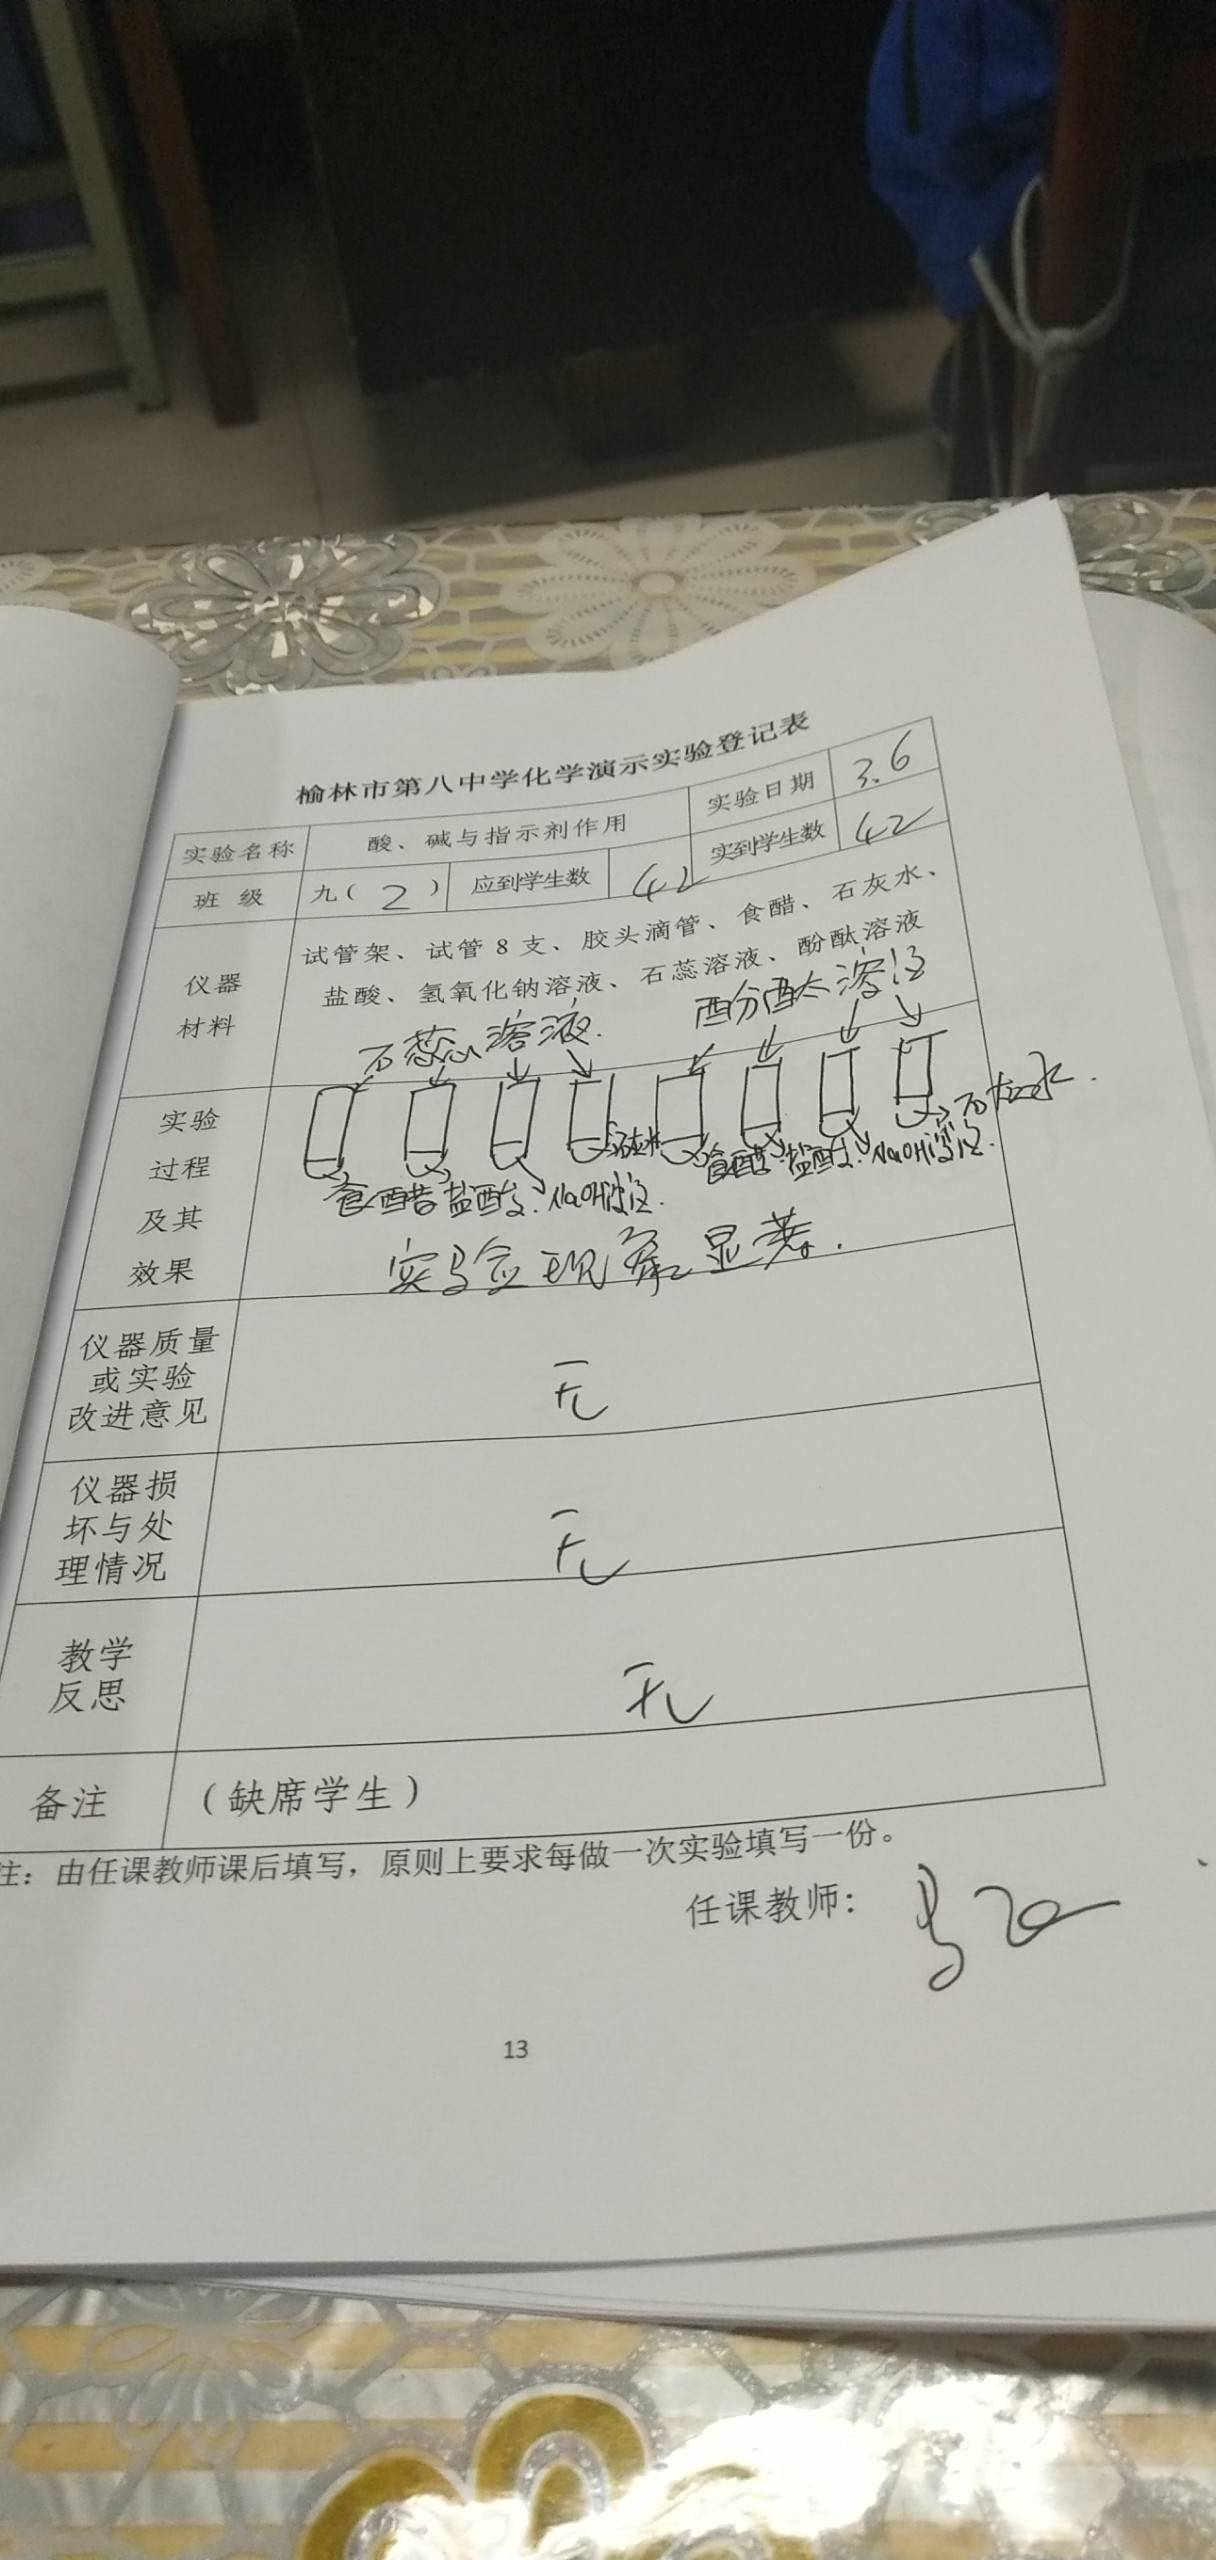 榆林市第八中学化学演示实验登记表
实验名称 酸、碱与指示剂作用 实验日期 3.6
班 级 九（ 2 ） 应到学生数 42 实到学生数 42
仪器
材料
试管架、试管 8 支、胶头滴管、食醋、石灰水、
盐酸、氢氧化钠溶液、石蕊溶液、酚酞溶液
石蕊溶液. 酚酞溶液
实验
过程
及其
效果
食醋 盐酸. NaOH溶液. 石灰水 食醋 盐酸. NaOH溶液. 石灰水.
实验现象显著.
仪器质量
或实验
改进意见
无
仪器损
坏与处
理情况
无
教学
反思
无
备注 （缺席学生）
注：由任课教师课后填写，原则上要求每做一次实验填写一份。
任课教师：
13